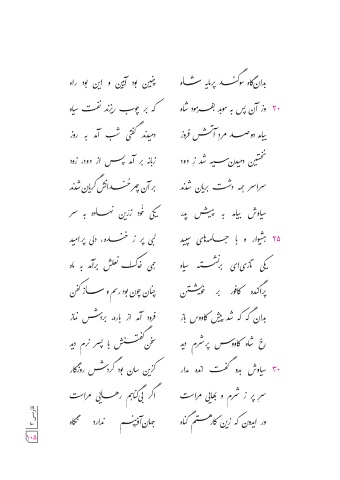 بدان‌گاه سوگند پرمایه شاه چنین بود آیین و این بود راه
۲۰ وز آن پس به موبد بفرمود شاه که بر چوب ریزند نفت سیاه
بیامد دو صد مرد آتش فروز دمیدند گفتی شب آمد به روز
نخستین دمیدن سیه شد ز دود زبانه بر آمد پس از دود، زود
سراسر همه دشت بریان شدند بر آن چهر خندانش گریان شدند
سیاوش بیامد به پیش پدر یکی خُود زرّین نهاده به سر
۲۵ هشیوار و با جامه‌های سپید لبی پر ز خنده، دلی پر امید
یکی تازی‌ای برنشسته سیاه همی خاک نعلش برآمد به ماه
پراگنده کافور بر خویشتن چنان چون بود رسم و ساز کفن
بدان‌گه که شد پیش کاووس باز فرود آمد از باره، بردش نماز
رخ شاه کاووس پرشرم دید سخن گفتنش با پسر نرم دید
۳۰ سیاوش بدو گفت انده مدار کزین سان بود گردش روزگار
سرِ پر ز شرم و بهایی مراست اگر بی‌گناهم رهایی مراست
ور ایدون که زین کار هستم گناه جهان‌آفرینم ندارد نگاه
فارسی ۳
۱۰۵